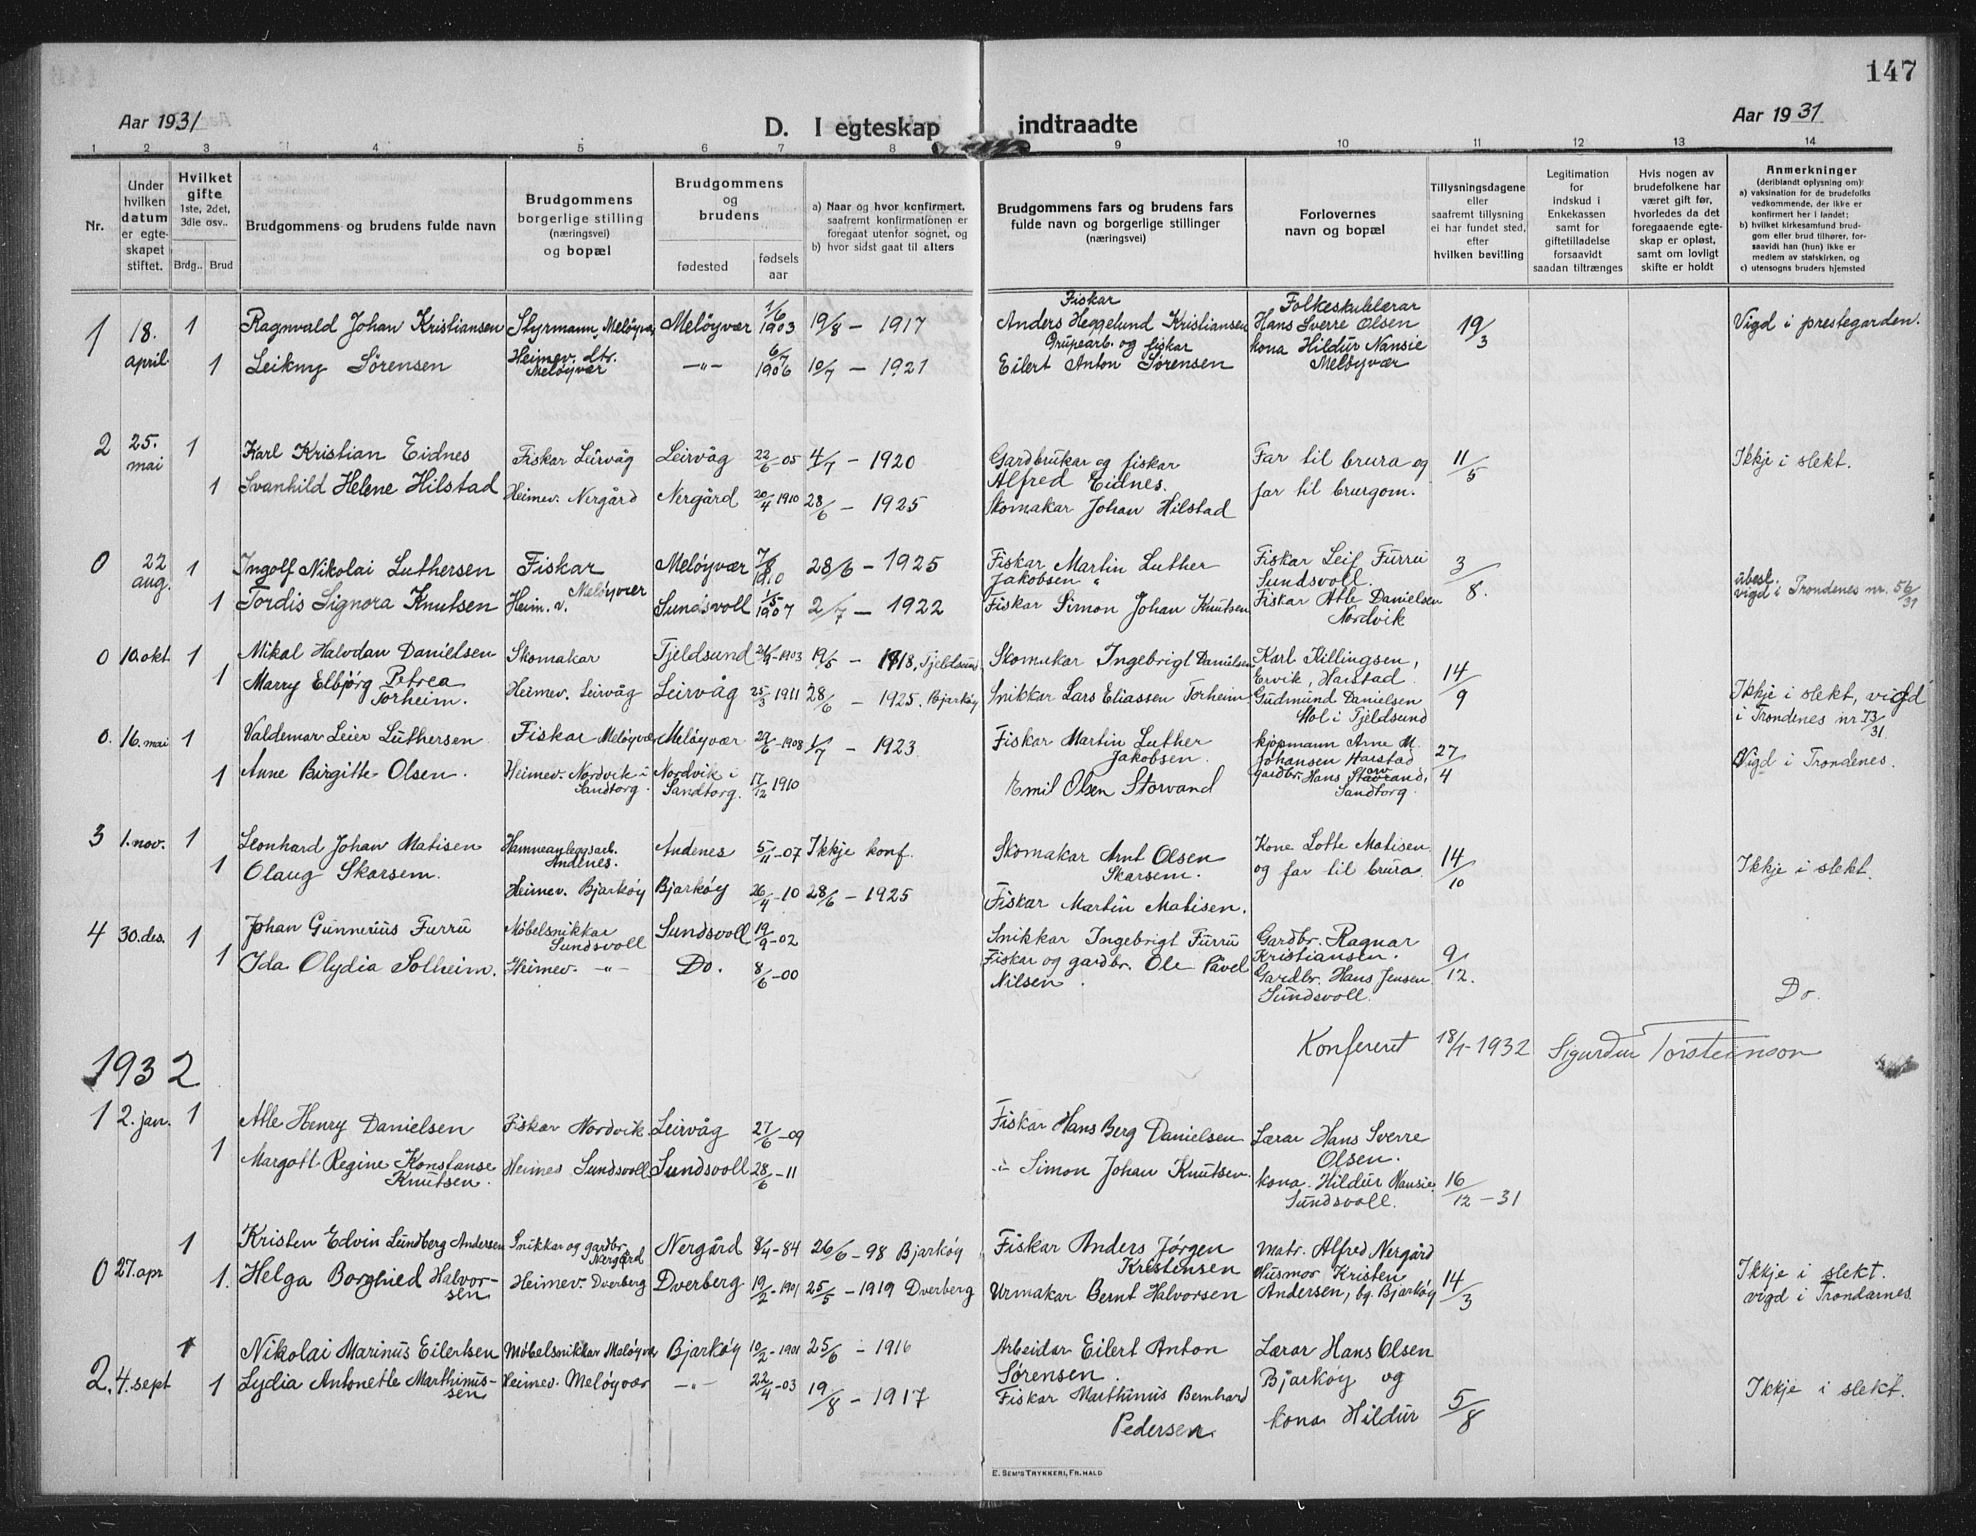 147
Aar 1931
D. I egteskap indtraadte
Aar 1931
1 2 3 4 5 6 7 8 9 10 11 12 13 14
Nr.
Under hvilken datum er egteskapet stiftet.
Hvilket gifte 1ste, 2det, 3die osv..
Brdg.. Brud
Brudgommens og brudens fulde navn
Brudgommens borgerlige stilling (næringsvei) og bopæl
Brudgommens og brudens
fødested
fødsels aar
a) Naar og hvor konfirmert, saafremt konfirmationen er foregaat utenfor sognet, og
b) hvor sidst gaat til alters
Brudgommens fars og brudens fars fulde navn og borgerlige stillinger (næringsvei)
Forlovernes navn og bopæl
Tillysningsdagene eller saafremt tillysning ei har fundet sted, efter hvilken bevilling
Legitimation for indskud i Enkekassen samt for giftetilladelse forsaavidt saadan tiltrænges
Hvis nogen av brudefolkene har været gift før, hvorledes da det foregaaende egteskap er opløst, samt om lovligt skifte er holdt
Anmerkninger
(deriblandt oplysning om):
a) vaksination for de brudefolks vedkommende, der ikke er konfirmert her i landet;
b) hvilket kirkesamfund brudgom eller brud tilhører, forsaavidt han (hun) ikke er medlem av statskirken, og
c) utensogns bruders hjemsted
1 18. april 1 Ragnvald Johan Kristiansen Styrmann, Meløyvær Meløyvær 1/6 1903 19/8 – 1917 Fiskar Anders Heggelund Kristiansen Folkeskulelærar Hans Sverre Olsen 19/3 Vigd i prestegarden.
1 Leikny Sørensen Heimev. dtr. Meløyvær –"– 6/7 1906 10/7 – 1921 Grupearb. og fiskar Eilert Anton Sørensen kona Hildur Nansie Meløyvær
2 25. mai 1 Karl Kristian Eidnes Fiskar Leirvåg Leirvåg 22/6 -05 4/7 – 1920 Gardbrukar og fiskar Alfred Eidnes. Far til brura og 11/5 Ikkje i slekt.
1 Svanhild Helene Hilstad Heimev. Nergård Nergård 20/4 1910 28/6 – 1925 Skomakar Johan Hilstad far til brurgom.
0 22 aug. 1 Ingolf Nikolai Luthersen Fiskar Meløyvær Meløyvær 7/8 1910 28/6 – 1925 Fiskar Martin Luther Jakobsen Fiskar Leif Furru Sundsvoll. 3/8. ubesl. vigd i Trondenes nr. 56/31
1 Tordis Signora Knutsen Heim. v. Sundsvoll 1/5 1907 2/7 – 1922 Fiskar Simon Johan Knutsen Fiskar Atle Danielsen Nordvik
0 10. okt 1 Mikal Halvdan Danielsen Skomakar Tjeldsund 21/9 -1903 19/5 – 1918, Tjeldsund Skomakar Ingebrigt Danielsen Karl Killingsen, Ervik, Harstad. 14/9 Ikkje i slekt, vigd i Trondenes nr 73/31
1 Marry Elbjørg Petrea Torheim. Heimev. Leirvåg Leirvåg 25/3 1911 28/6 – 1925. Bjarkøy Snikkar Lars Eliassen Torheim Gudmund Danielsen Hol i Tjeldsund
0. 16. mai 1 Valdemar Leier Luthersen Fiskar Meløyvær Meløyvær 29/6 -1908 1/7 – 1923 Fiskar Martin Luther Jakobsen. kjøpmann Arne M. Johansen Harstad 27/4 Vigd i Trondenes.
1 Anne Birgitte Olsen. Heimev. Nordvik i Sandtorg. Nordvik i Sandtorg. 17/12 1910 Emil Olsen Storvand gardbr. Hans Sandtorg.
3 1. nov. 1 Leonhard Johan Matisen Hamneanleggsarb. Andenes. Andenes 5/11 -07 Ikkje konf. Skomakar Arnt Olsen Skarsem. Kone Lotte Matisen 14/10 Ikkje i slekt.
1 Olaug Skarsem. Heimev. Bjarkøy Bjarkøy 26/4 -10 28/6 – 1925 Fiskar Martin Matisen. og far til brura.
4 30. des. 1 Johan Gunnerius Furru Møbelsnikkar Sundsvoll Sundsvoll 19/9 -02 Snikkar Ingebrigt Furru Gardbr. Ragnar Kristiansen. 9/12.
1 Ida Olydia Solheim. Heimev. –"– Do. 8/6 -00 Fiskar og gardbr. Ole Pavel Nilsen. Gardbr. Hans Jensen Sundsvoll. Do.
Konfereret 18/1 - 1932 Sigurdur Torsteinson
1932
1 2. jan. 1 Atle Henry Danielsen Fiskar Nordvik Leirvåg 27/6 -09 Fiskar Hans Berg Danielsen Lærar Hans Sverre Olsen.
1 Margott Regine Konstanse Knutsen. Heimev Sundsvoll Sundsvoll 28/6 -11 –"– Simon Johan Knutsen. kona Hildur Nansie. Sundsvoll. 16/12 -31
0 27. apr 1 Kristen Edvin Lundberg Andersen Snikkar og gardbr. Nergård Nergård 8/4 -84 26/6 -98 Bjarkøy Fiskar Anders Jørgen Kristensen Matr. Alfred Nergård 14/3 Ikkje i slekt. vigd i Trondarnes.
1. Helga Borghied Halvorsen Heimev. Dverberg Dverberg 19/2 -1901 25/5 - 1919 Dverberg Urmakar Bernt Halvorsen Husmor Kristen Andersen, bg. Bjarkøy
2. 4. sept 1 Nikolai Marinus Eilertsen Møbelsnikkar Meløyvær Bjarkøy 10/2 -1901 25/6 – 1916 Arbeidar Eilert Anton Sørensen. Lærar Hans Olsen Bjarkøy og 5/8 Ikkje i slekt.
1 Lydia Antonette Marthinussen Heimev. Meløyvær –"– 22/4 -03 19/8 – 1917 Fiskar Marthinus Bernhard Pedersen. kona Hildur
E. SEM'S TRYKKERI, FR.HALD